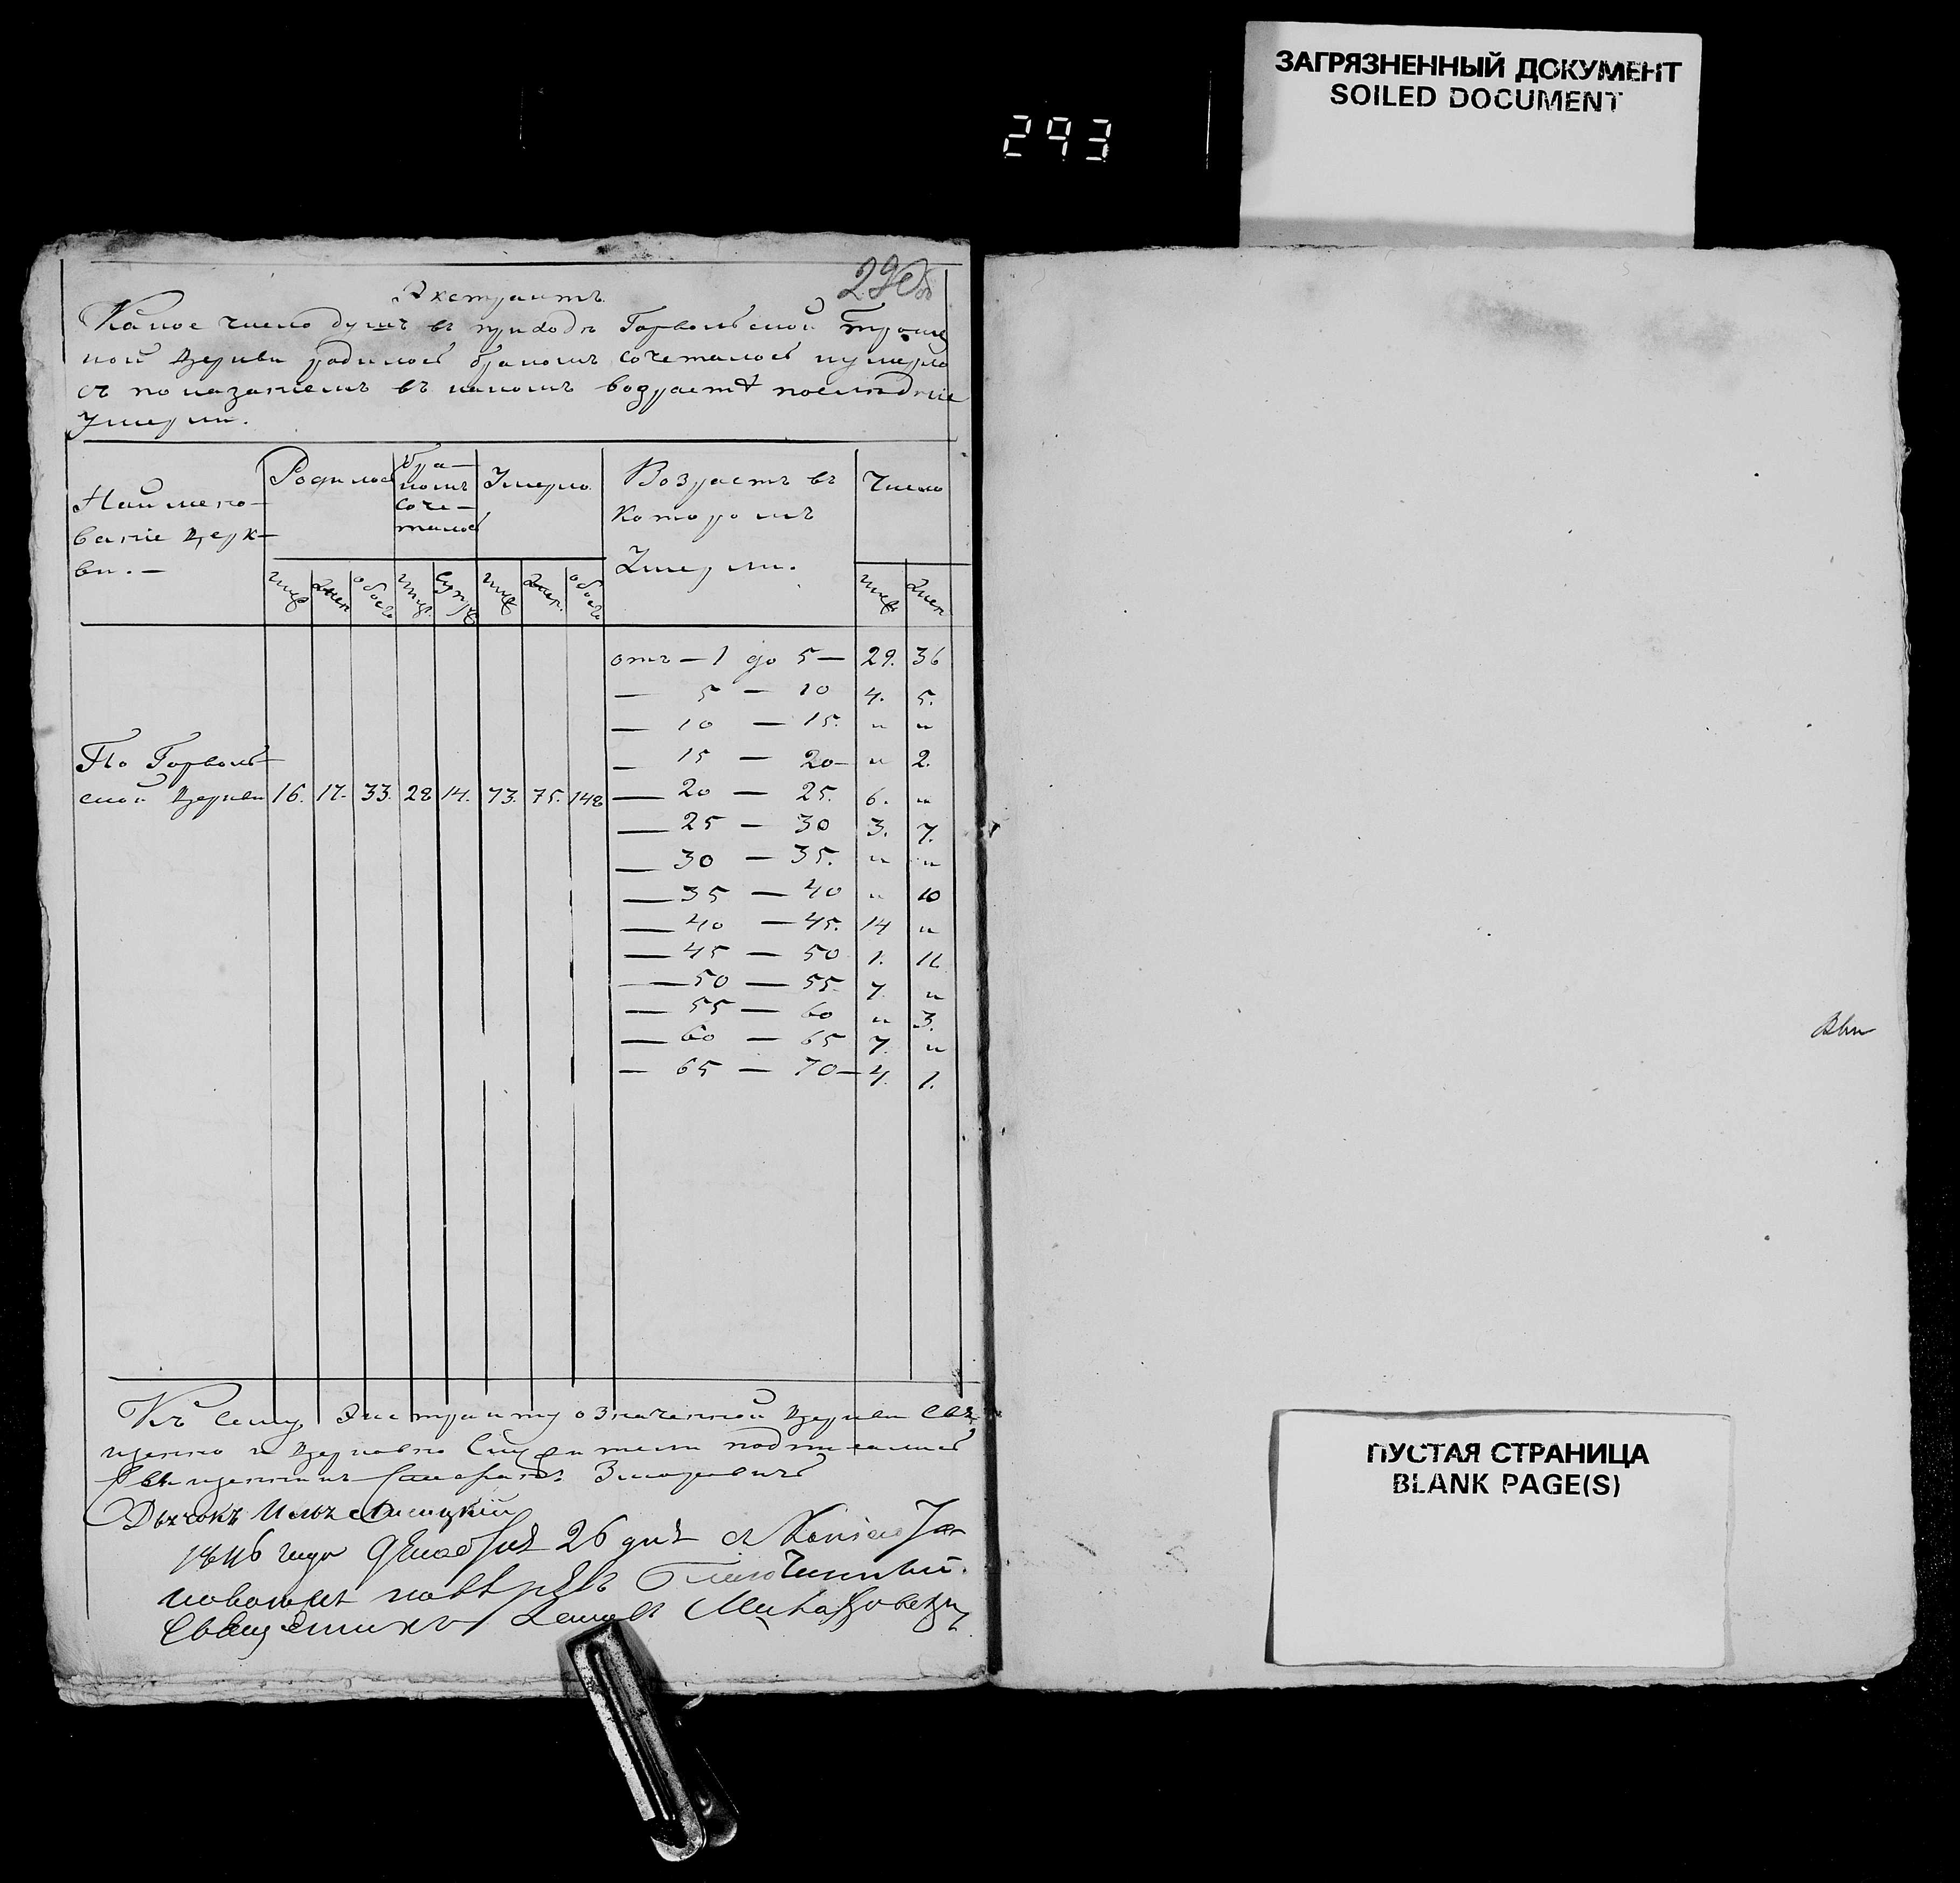 ЗАГРЯЗНЕННЫЙ ДОКУМЕНТ
SOILED DOCUMENT
293
290б
Экстрактъ
Какое число душъ въ приходѣ Горвольской Троиц
кой Церкви родилось бракомъ сочеталось и умерло
съ показаніемъ въ какомъ возрастѣ последніе
Умерли.
Наимено-
ваніе церк-
ви.
Родилось
бра-
комъ
соче-
талось
Умерло
Возрастъ въ
которомъ
Умерли.
Число
муж жен обоего муж. Супр муж жен. обоего муж. жен
отъ — 1 до 5 — 29. 36
— 5 — 10 4. 5.
— 10 — 15. „ „
— 15 — 20 — „ 2.
По Горволь-
ской Церкви 16. 17. 33. 28 14. 73. 75. 148
— 20 — 25. 6. „
— 25 — 30 3. 7.
— 30 — 35. „ „
— 35 — 40 „ 10
— 40 — 45. 14 „
— 45 — 50 1. 11
— 50 — 55. 7. „
— 55 — 60 „ 3.
— 60 — 65 7. „
— 65 — 70 — 4. 1.
Къ сему Экстракту означенной Церкви Свя
щенно и Церковно Служители подписались
Священникъ
Дьячокъ
1846 года Декабря 26 дня
Благочинный
Священникъ
ПУСТАЯ СТРАНИЦА
BLANK PAGE(S)